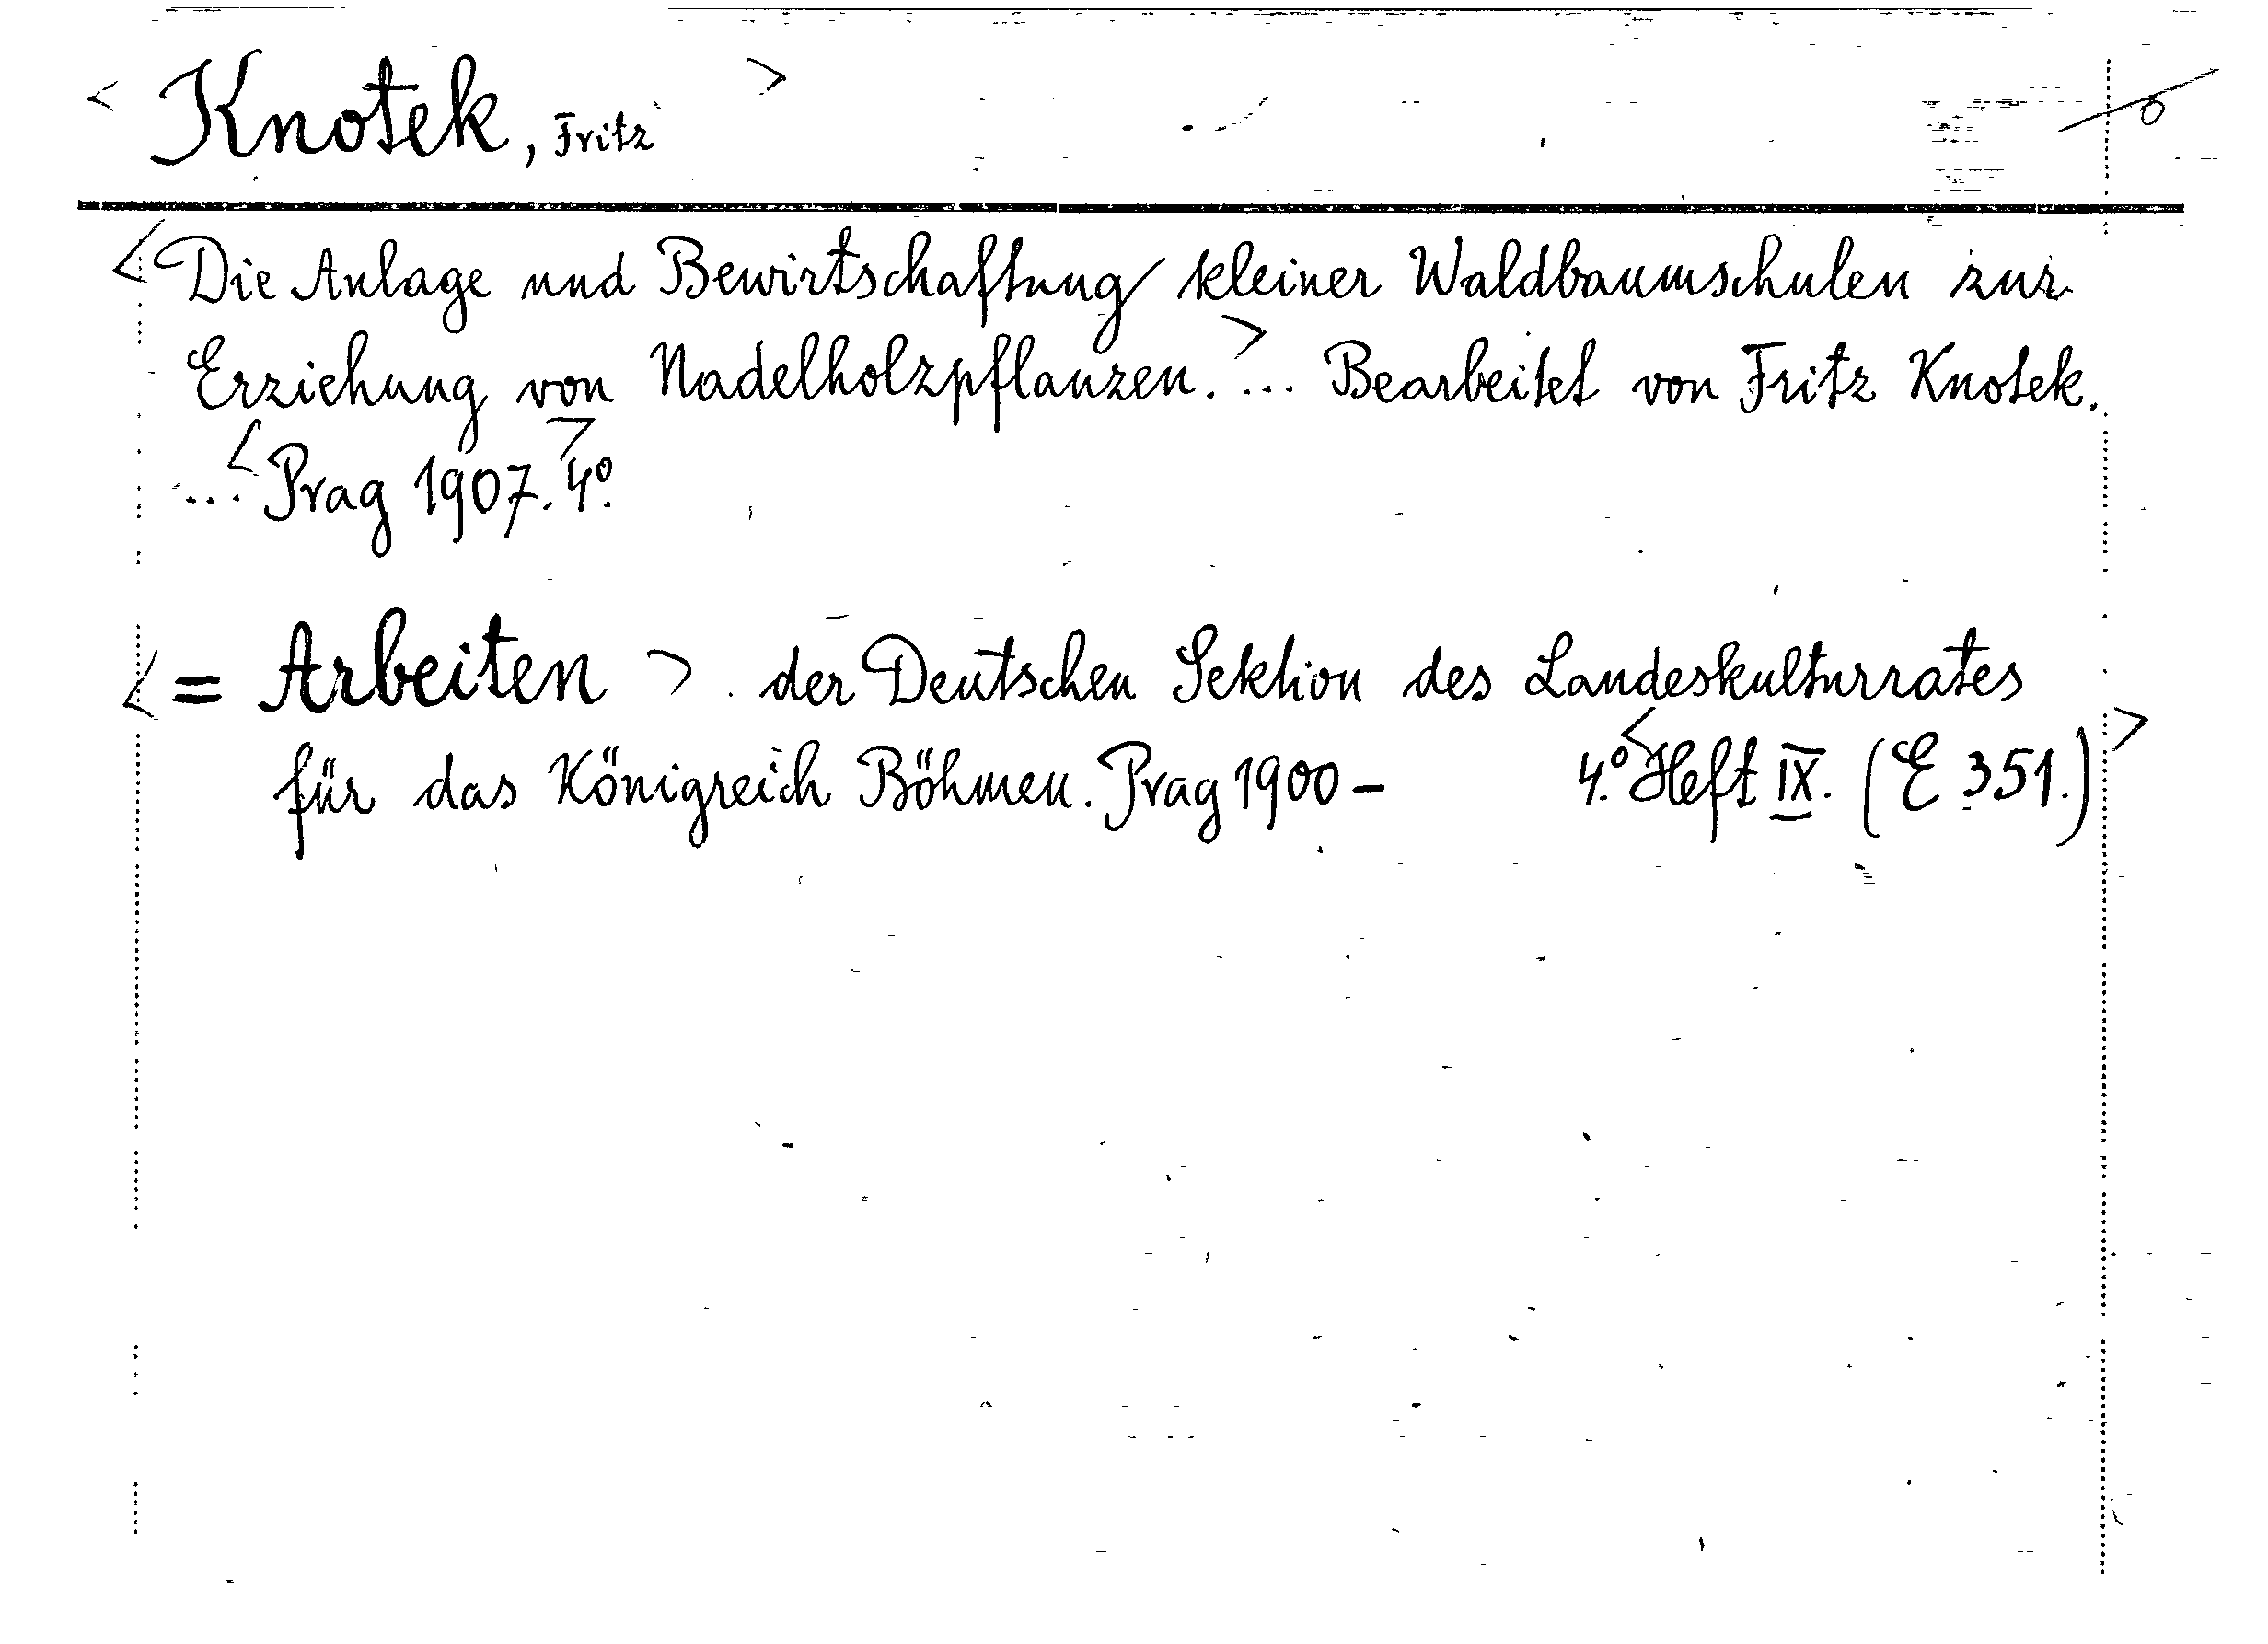 < Knotek, Fritz >
<Die Anlage und Bewirtschaftung kleiner Waldbaumschulen zur
Erziehung von Nadelholzpflanzen.> ... Bearbeitet von Fritz Knotek.
... <Prag 1907.> 4°.
<= Arbeiten > der Deutschen Sektion des Landeskulturrates
für das Königreich Böhmen. Prag 1900- 4.° <Heft IX. (E 351.)>